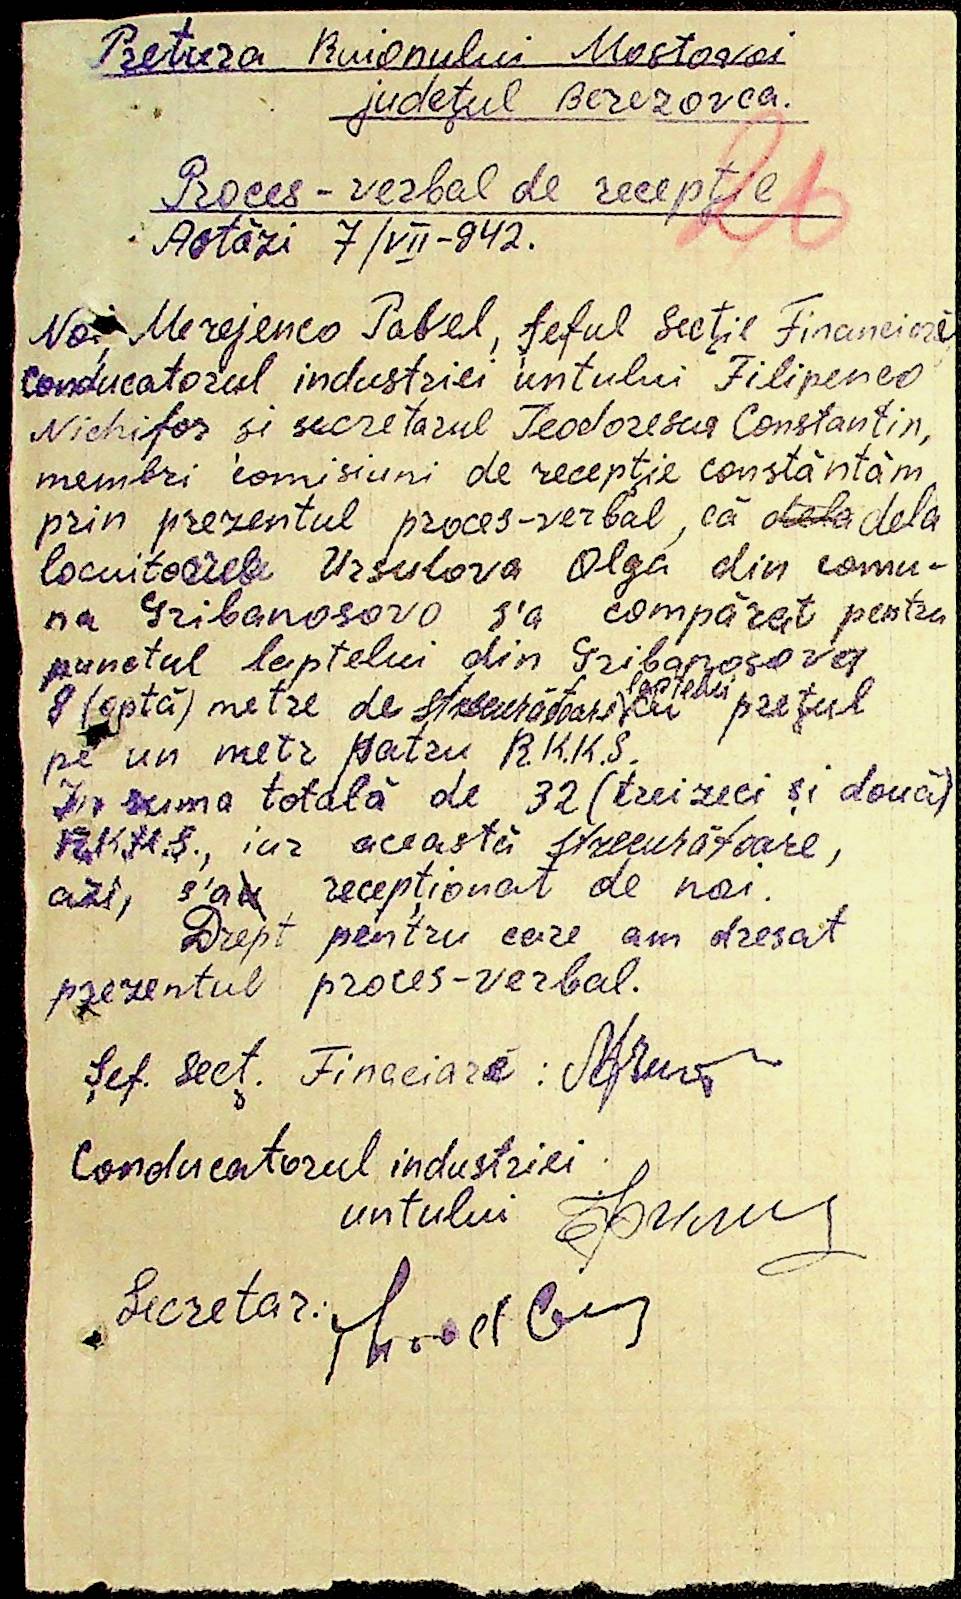 Pretura Raionului Mostovoi
județul Berezovca.
26
Proces-verbal de recepție
Astăzi 7/VII-942.
Noi, Merejenco Pavel, șeful Secție Financiară,
conducatorul industriei untului Filipenco
Nichifor si secretarul Teodorescu Constantin,
membri comisiuni de recepție constântăm
prin prezentul proces-verbal, că dela dela
locuitoarea Ursulova Olga din comu-
na Gribanosovo s'a compărat pentru
punctul laptelui din Gribanosova
8 (optă) metre de strecurătoare laptelui cu prețul
pe un metr patru R.K.K.S.
În suma totală de 32 (treizeci și două)
R.K.K.S., iar această strecurătoare,
azi, s'a recepționat de noi.
Drept pentru care am dresat
prezentul proces-verbal.
Șef. Secț. Finaciară:
Conducatorul industriei
untului
Secretar: